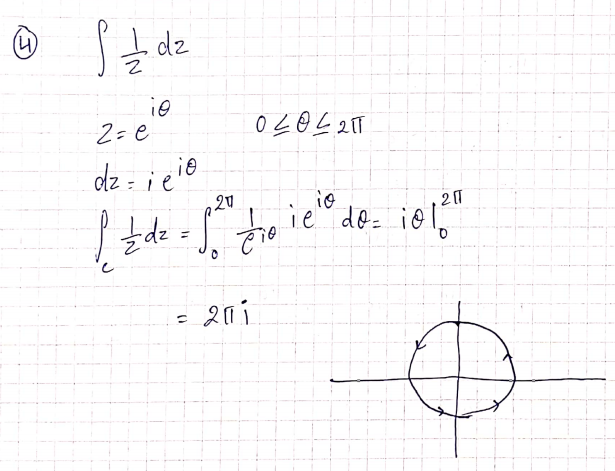 ④ ∫ 1/z dz
z = e^{iθ} 0 ≤ θ ≤ 2π
dz = i e^{iθ}
∫_c 1/z dz = ∫_0^{2π} 1/e^{iθ} i e^{iθ} dθ = iθ |_0^{2π}
= 2πi